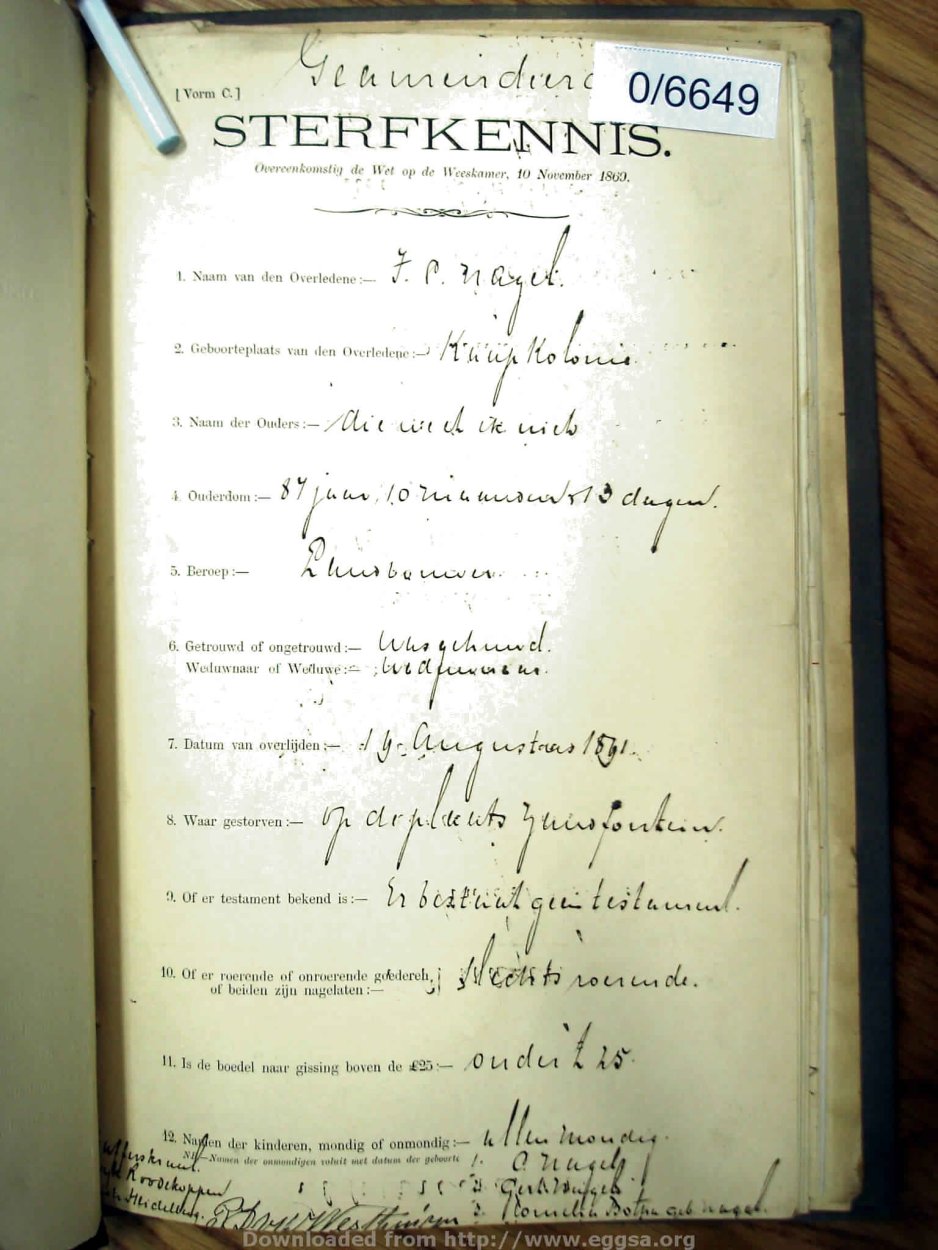 0/6649
[Vorm C.]
STERFKENNIS.
Overeenkomstig de Wet op de Weeskamer, 10 November 1869.
1. Naam van den Overledene:— J. P. Nagel.
2. Geboorteplaats van den Overledene:— Kaap Kolonie
3. Naam der Ouders:— die weet ik niet
4. Ouderdom:— 87 jaar, 10 maanden 13 dagen.
5. Beroep:— Landbouwer.
6. Getrouwd of ongetrouwd:— Was gehuwd.
Weduwnaar of Weduwe:— Weduwenaar.
7. Datum van overlijden:— 19 Augustus 1891.
8. Waar gestorven:— op de plaats Zandfontein.
9. Of er testament bekend is:— Er bestaat geen testament.
10. Of er roerende of onroerende goederen, Slechts roerende.
of beiden zijn nagelaten:—
11. Is de boedel naar gissing boven de £25:— onder £ 25.
12. Namen der kinderen, mondig of onmondig:— allen mondig.
N.B.—Namen der onmondigen voluit met datum der geboorte 1. C. Nagel
2. Gert Nagel
Roodekoppen
Heidelberg. v d Westhuizen 3. Cornelia Botha geb Nagel.
Downloaded from http://www.eggsa.org